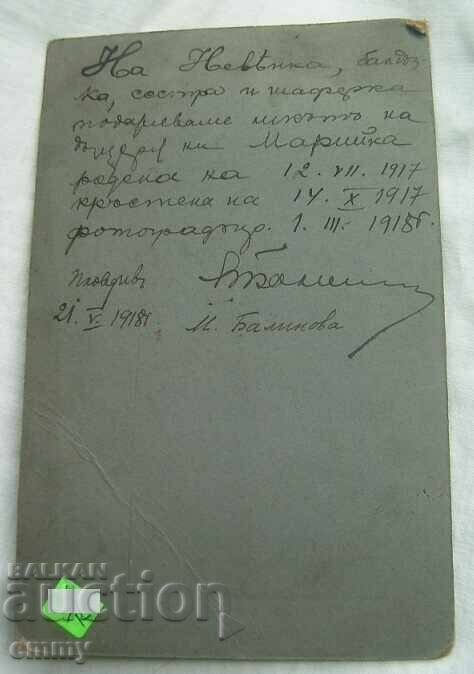 На Невѣнка, балдъз-
ка, сестра и шаферка
подаряваме ликътъ на
дъщеря ни Марийка
родена на 12. VII. 1917
кръстена на 14. X 1917
фотографъ 1. III. 1918г.
Пловдивъ
21. V. 1918г. М. Балинова
BALKAN
auction
emmy